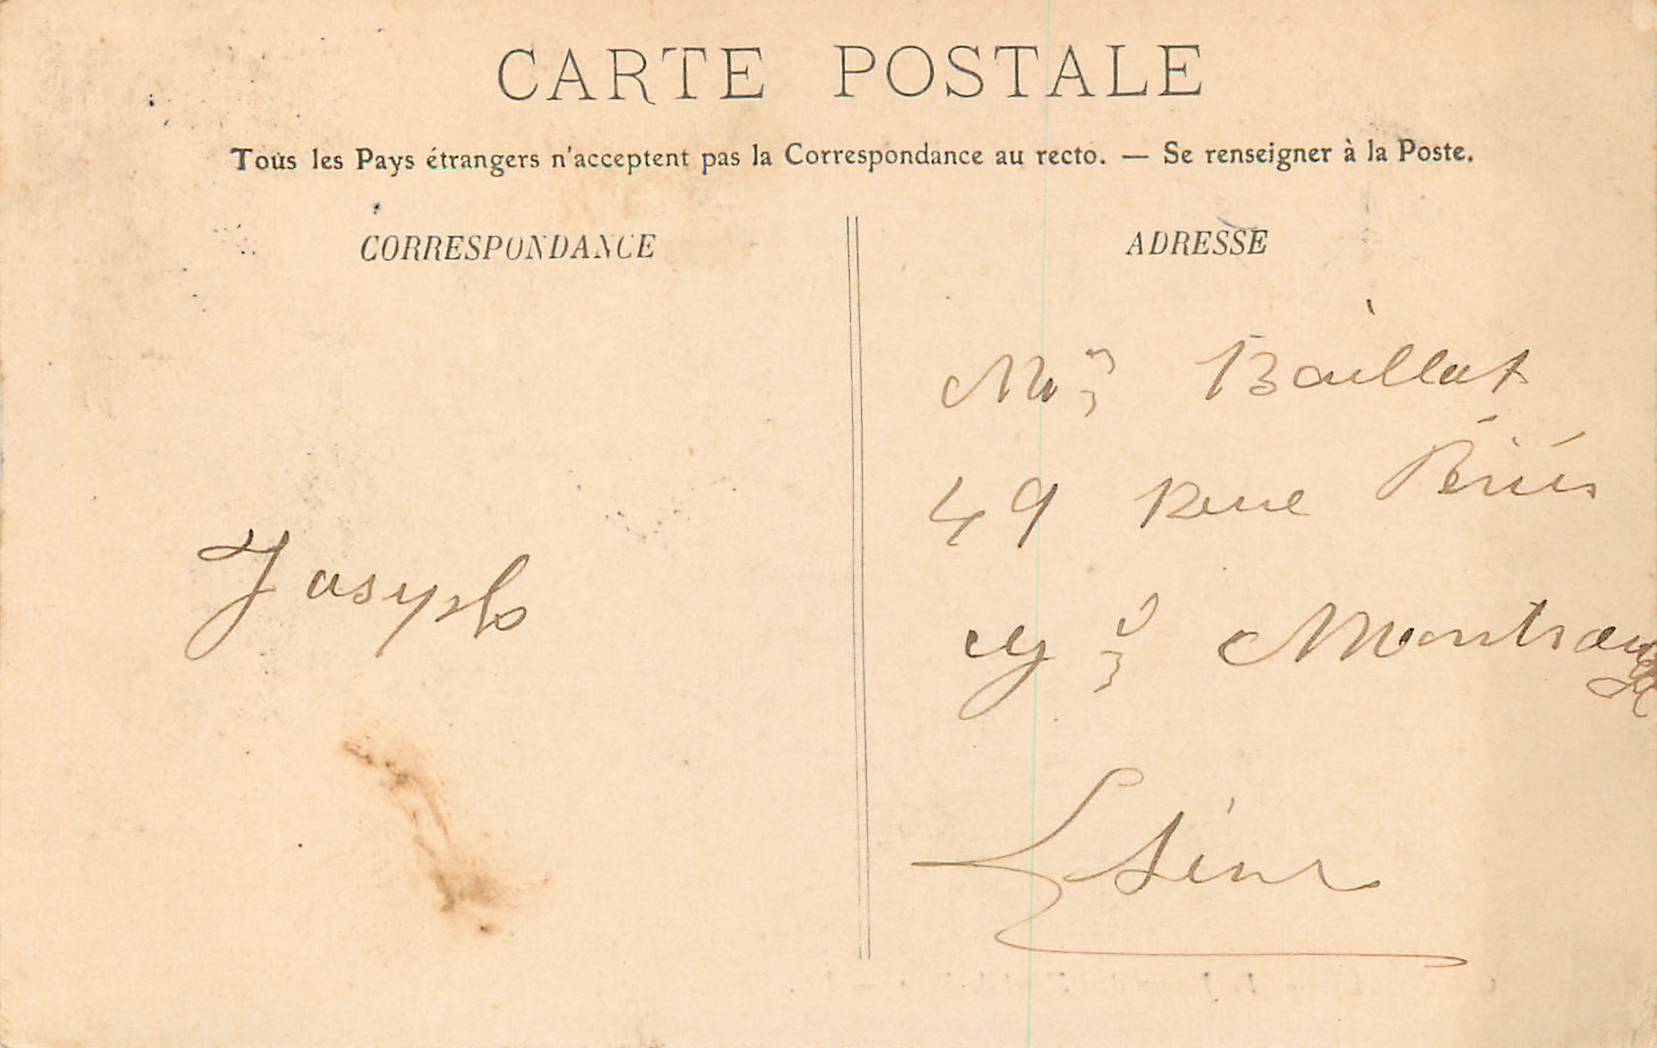 CARTE POSTALE
Tous les Pays étrangers n'acceptent pas la Correspondance au recto. — Se renseigner à la Poste.
CORRESPONDANCE
ADRESSE
Baillat
49 Rue Périer
Montrouge
Seine
Joseph